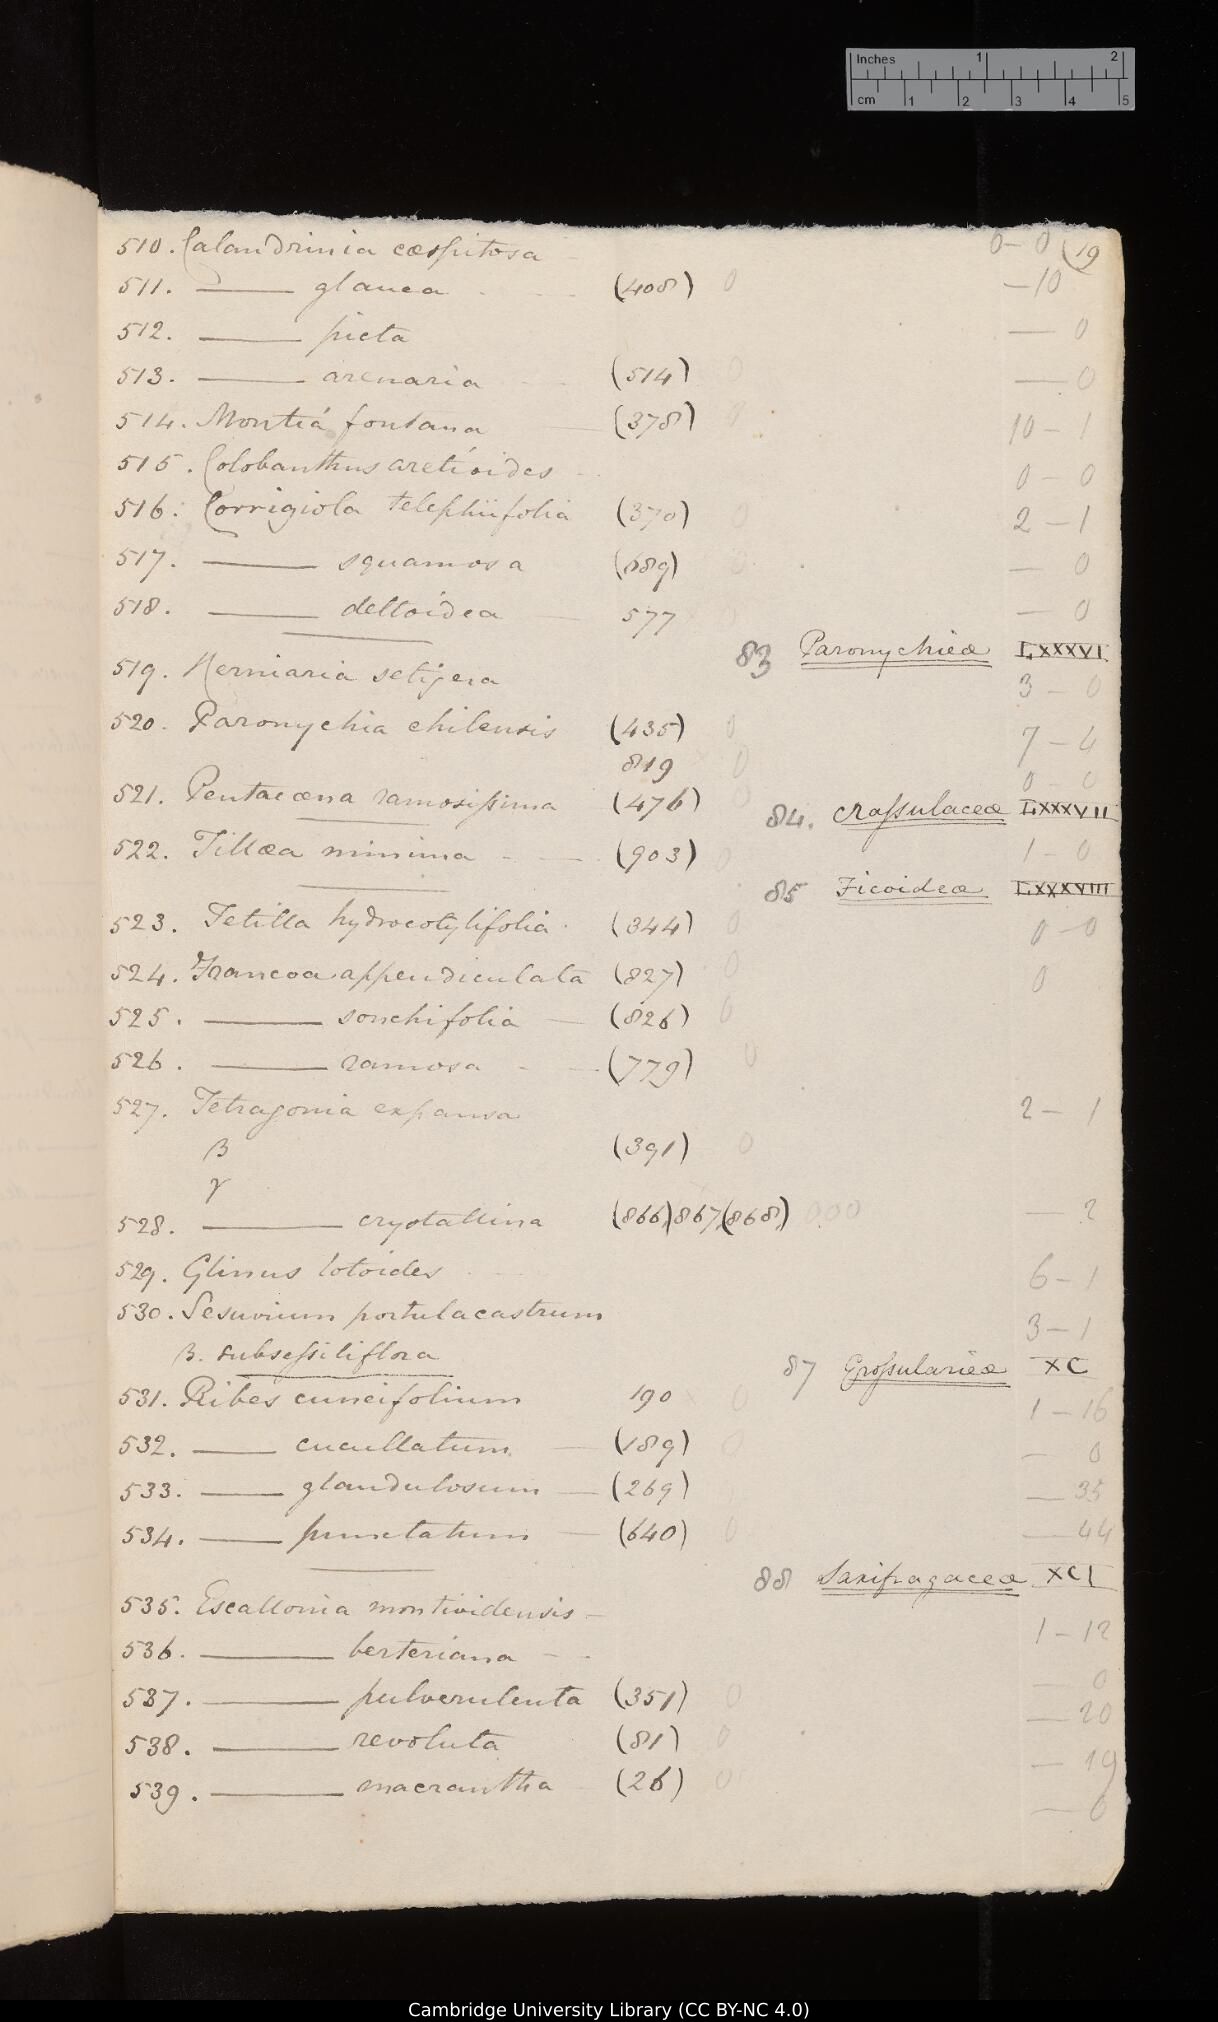 Inches 1 2
cm 1 2 3 4 5
510. Calandrinia cæspitosa 0 — 0 (19
511. —— glauca (408) 0 — 10
512. —— picta — 0
513. —— arenaria (514) 0 — 0
514. Montiá fontana (378) 0 10 — 1
515. Colobanthus aretioides 0 — 0
516. Corrigiola telephiifolia (370) 0 2 — 1
517. —— squamosa (689) 0 — 0
518. —— deltoidea 577 0 — 0
83 Paronychieæ LXXXVI
519. Herniaria setigera 3 — 0
520. Paronychia chilensis (435) 0 7 — 4
819 0
521. Pentacæna ramosissima (476) 0 0 — 0
84. Crassulaceæ LXXXVII
522. Tillæa minima (903) 0 1 — 0
85 Ficoideæ LXXXVIII
523. Tetilla hydrocotylifolia (344) 0 0 — 0
524. Francoa appendiculata (827) 0 0
525. —— sonchifolia (826) 0
526. —— ramosa (779) 0
527. Tetragonia expansa 2 — 1
β (391) 0
γ
528. —— crystallina (866) 867 (868) 000 — 2
529. Glinus lotoides 6 — 1
530. Sesuvium portulacastrum 3 — 1
β. subsessiliflora
87 Grossularieæ XC
531. Ribes cuneifolium 190 0 1 — 16
532. —— cucullatum (189) 0 — 0
533. —— glandulosum (269) — 35
534. —— punctatum (640) 0 — 44
88 Saxifragaceæ XCI
535. Escallonia montividensis 1 — 12
536. —— berteriana — 0
537. —— pulverulenta (351) 0 — 20
538. —— revoluta (81) 0 — 19
539. —— macrantha (26) 0 — 0
Cambridge University Library (CC BY-NC 4.0)